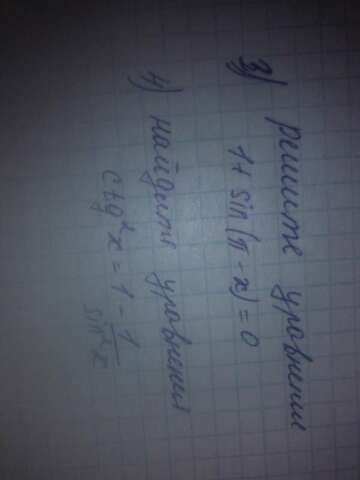 3) решите уравнение
1 + sin(π - x) = 0
4) найдите уравнения
ctg²x = 1 - 1/sin²x